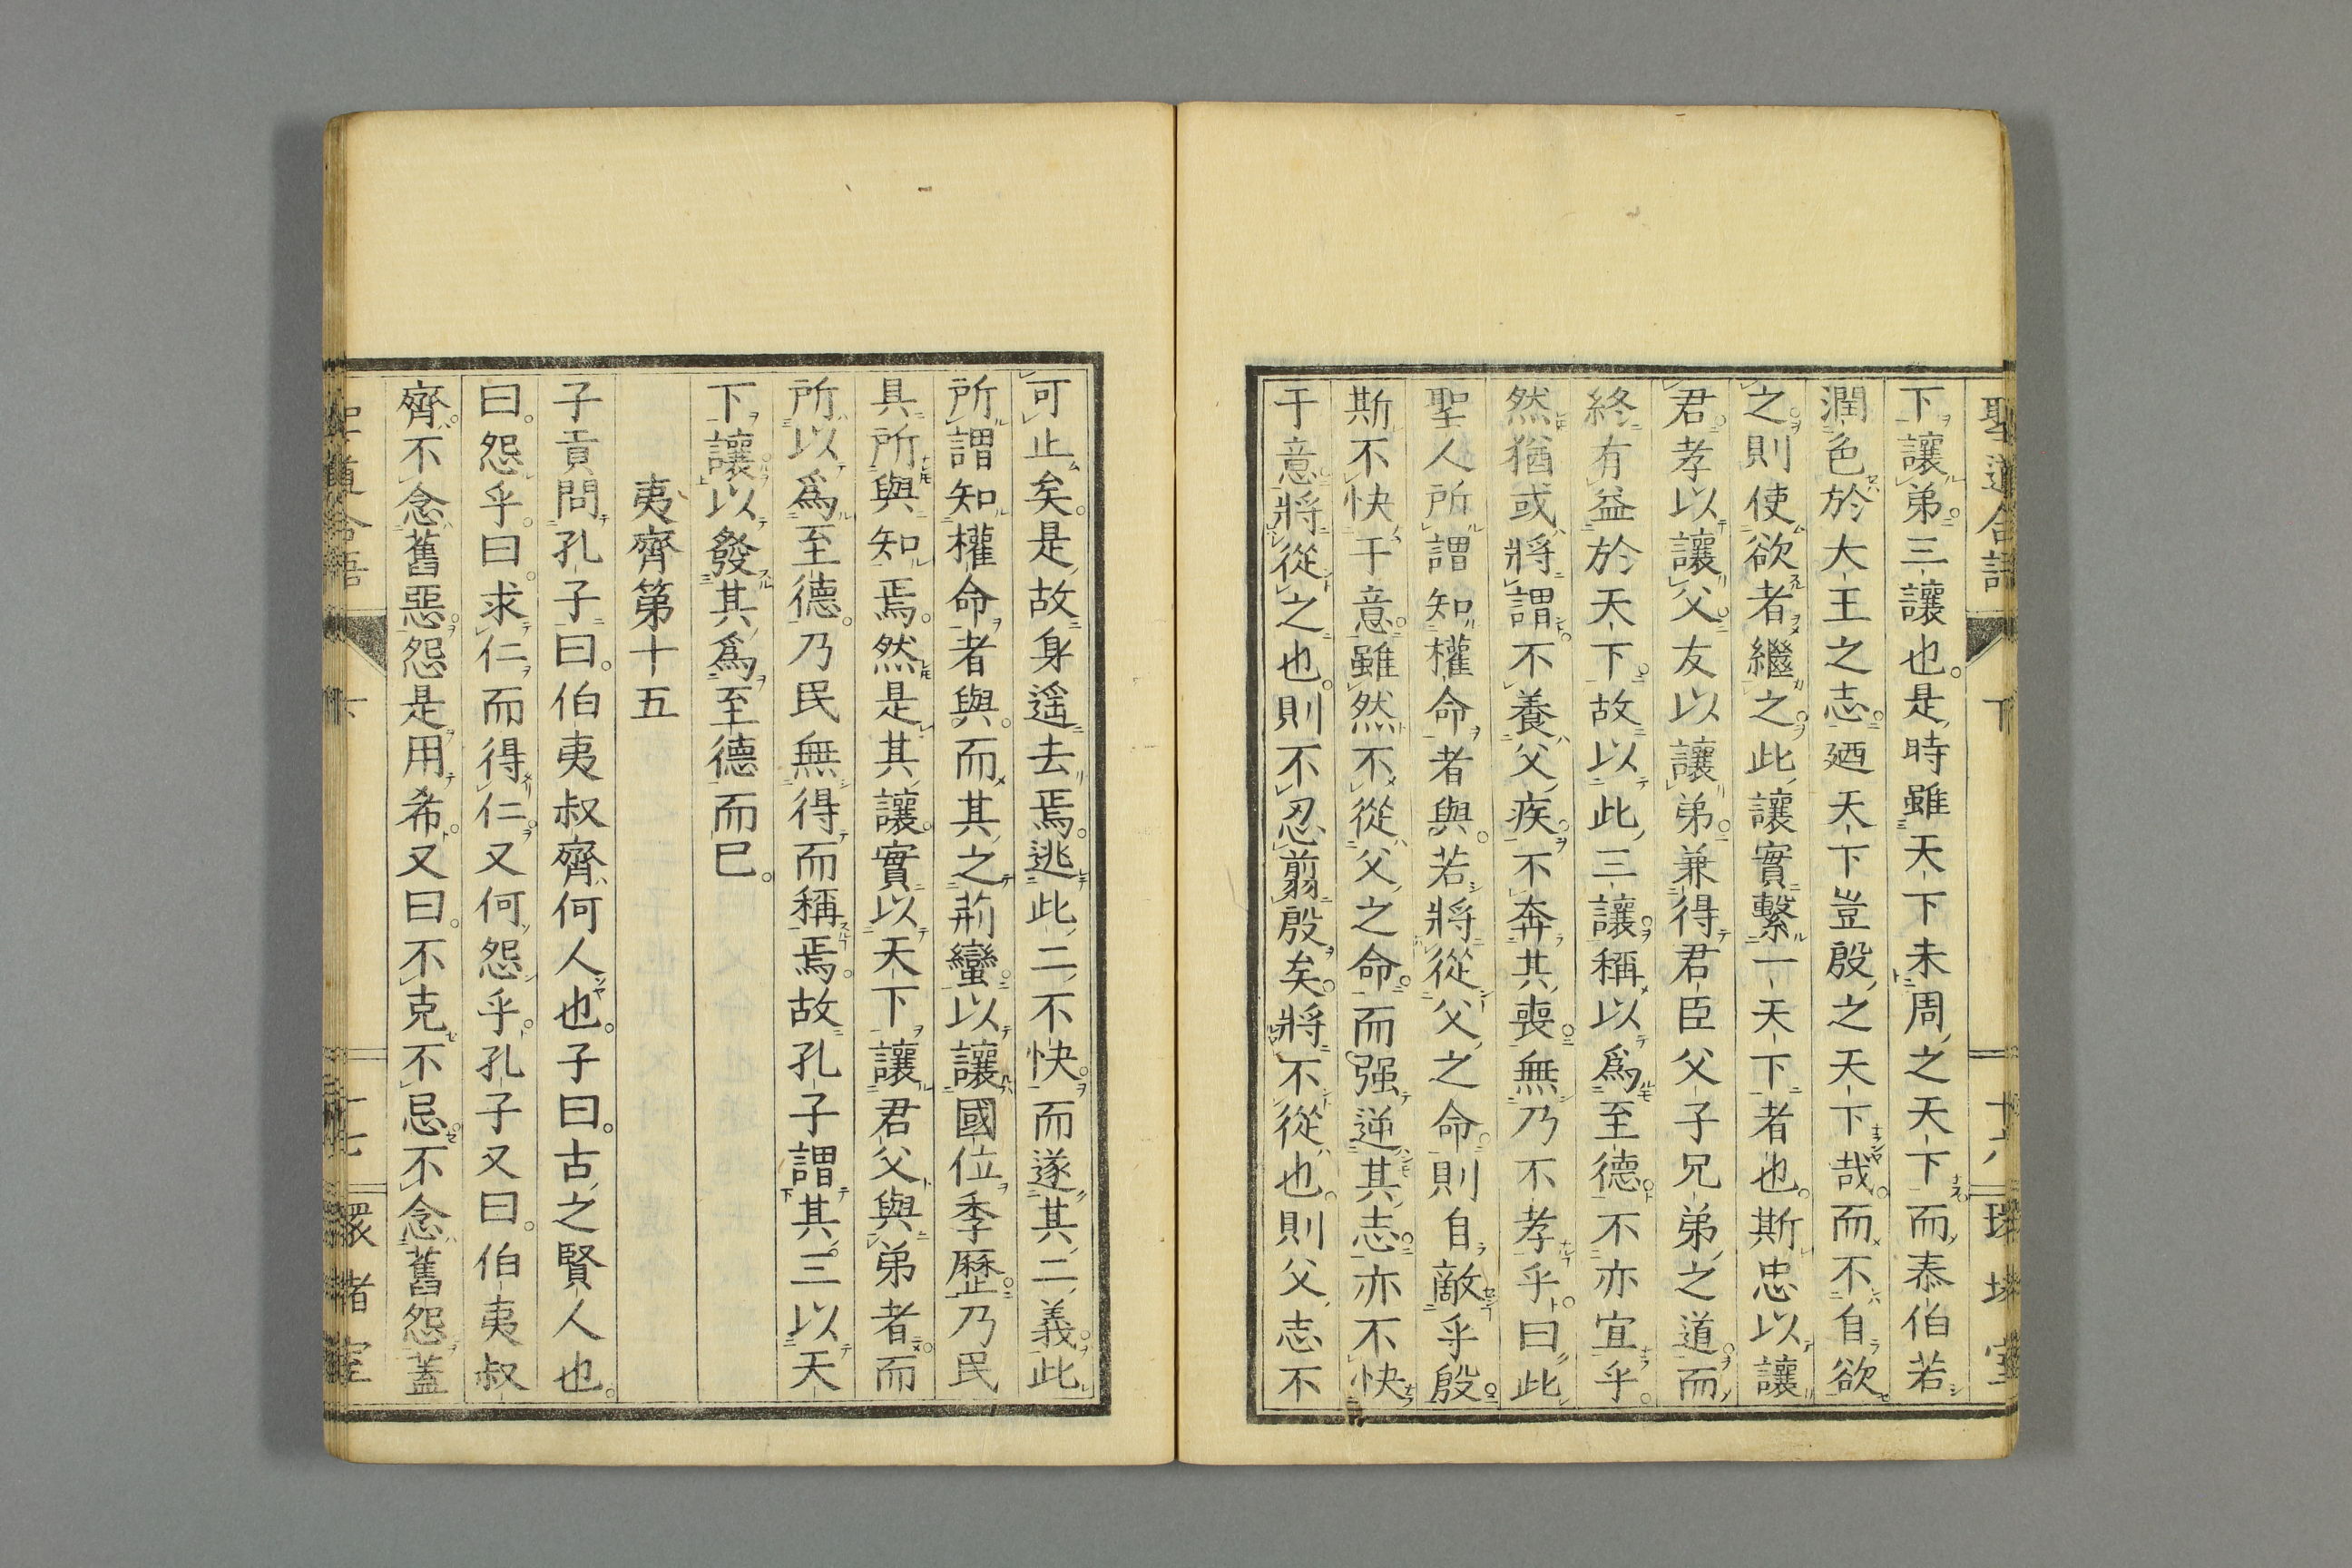 下讓弟三讓也。是時雖天下未周之天下而泰伯若
潤色於大王之志廼天下豈殷之天下哉。而不自欲
之則使欲者繼之此讓實繫一天下者也。斯忠以讓
君孝以讓父友以讓弟兼得君臣父子兄弟之道而
終有益於天下故以此三讓稱以爲至德不亦宜乎。
然猶或將謂不養父疾不奔其喪無乃不孝乎曰此
聖人所謂知權命者與。若將從父之命則自敵乎殷
斯不快于意雖然不從父之命而强逆其志亦不快
于意將從之也。則不忍翦殷矣。將不從也。則父志不
可止矣。是故身遥去焉。逃此二不快而遂其二義此
所謂知權命者與。而其之荊蠻以讓國位季歷乃民
具所與知焉。然是其讓實以天下讓君父與弟者而
所以爲至德。乃民無得而稱焉。故孔子謂其三以天
下讓以發其爲至德而巳。
夷齊第十五
子貢問孔子曰。伯夷叔齊何人也。子曰。古之賢人也。
曰。怨乎。曰。求仁而得仁又何怨乎。孔子又曰。伯夷叔
齊不念舊惡怨是用希又曰。不克不忌不念舊怨蓋